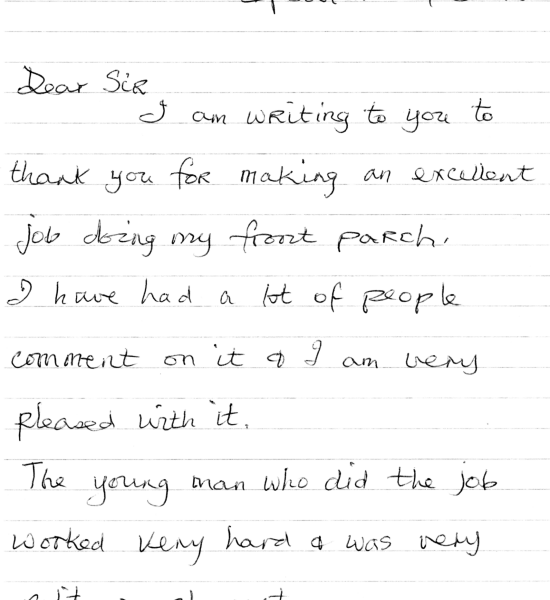 Dear Sir
I am writing to you to
thank you for making an excellent
job doing my front parch.
I have had a lot of people
comment on it & I am very
pleased with it.
The young man who did the job
worked very hard & was very